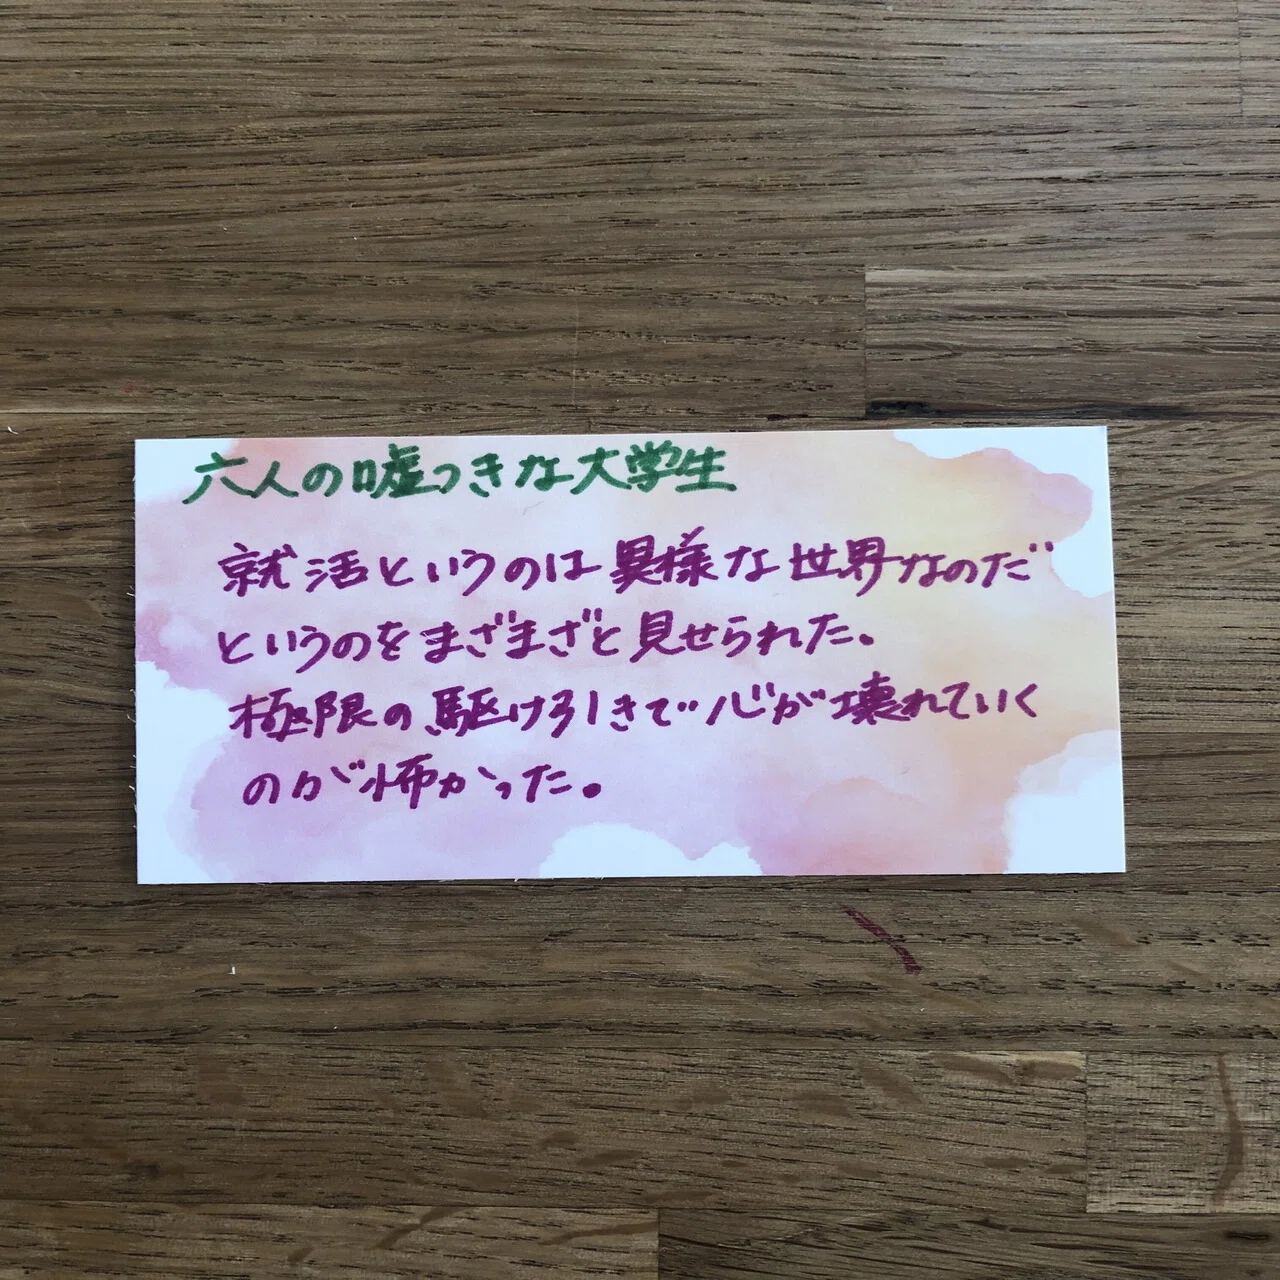 六人の嘘つきな大学生
就活というのは異様な世界なのだ
というのをまざまざと見せられた。
極限の駆け引きで心が壊れていく
のが怖かった。